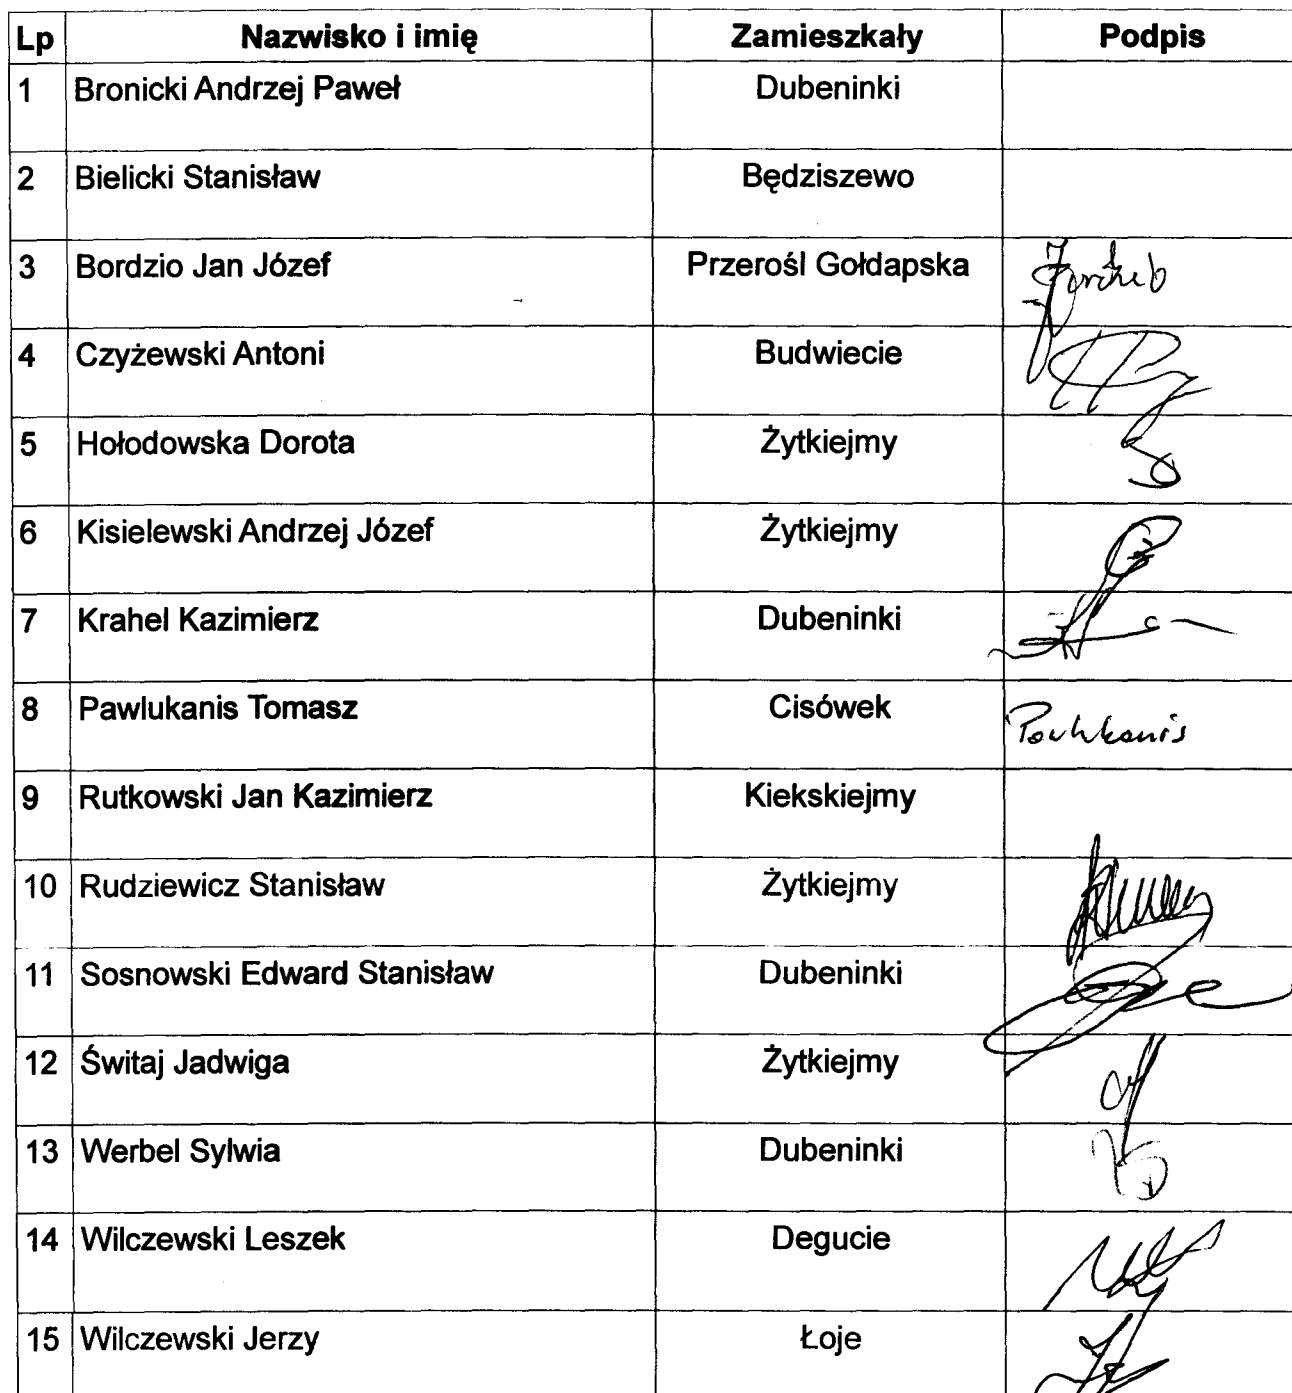 Lp Nazwisko i imię Zamieszkały Podpis
1 Bronicki Andrzej Paweł Dubeninki
2 Bielicki Stanisław Będziszewo
3 Bordzio Jan Józef Przerośl Gołdapska
4 Czyżewski Antoni Budwiecie
5 Hołodowska Dorota Żytkiejmy
6 Kisielewski Andrzej Józef Żytkiejmy
7 Krahel Kazimierz Dubeninki
8 Pawlukanis Tomasz Cisówek
9 Rutkowski Jan Kazimierz Kiekskiejmy
10 Rudziewicz Stanisław Żytkiejmy
11 Sosnowski Edward Stanisław Dubeninki
12 Świtaj Jadwiga Żytkiejmy
13 Werbel Sylwia Dubeninki
14 Wilczewski Leszek Degucie
15 Wilczewski Jerzy Łoje